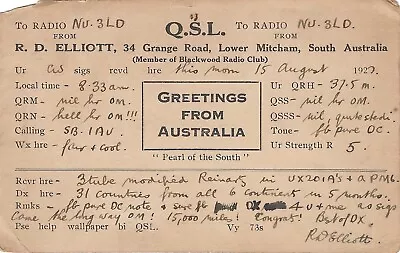 To RADIO NU. 3LD Q.S.L. To RADIO NU. 3LD.
FROM FROM
R. D. ELLIOTT, 34 Grange Road, Lower Mitcham, South Australia
(Member of Blackwood Radio Club)
Ur CW sigs recvd hre this morn 15 August 1927.
Local time - 8.33 am. Ur QRH - 37.5 m.
QRM - nil hr om. QSS - nil hr om.
QRN - hell hr om!!! GREETINGS FROM AUSTRALIA QSSS - nil, quite stedi.
Calling - SB. 1AU Tone - fb pure DC.
Wx hre - fair & cool. Ur Strength R 5
" Pearl of the South "
Rcvr hre - 3 tube modified Reinartz in UX201A's & a PM6.
Dx hre - 31 countries from all 6 continents in 5 months.
Rmks - fb pure DC note & sure fb DX 4 U & me as sigs
came the long way OM! 15,000 miles! Congrats! Best of DX.
Pse help wallpaper bi QSL. Vy 73s
RD Elliott.